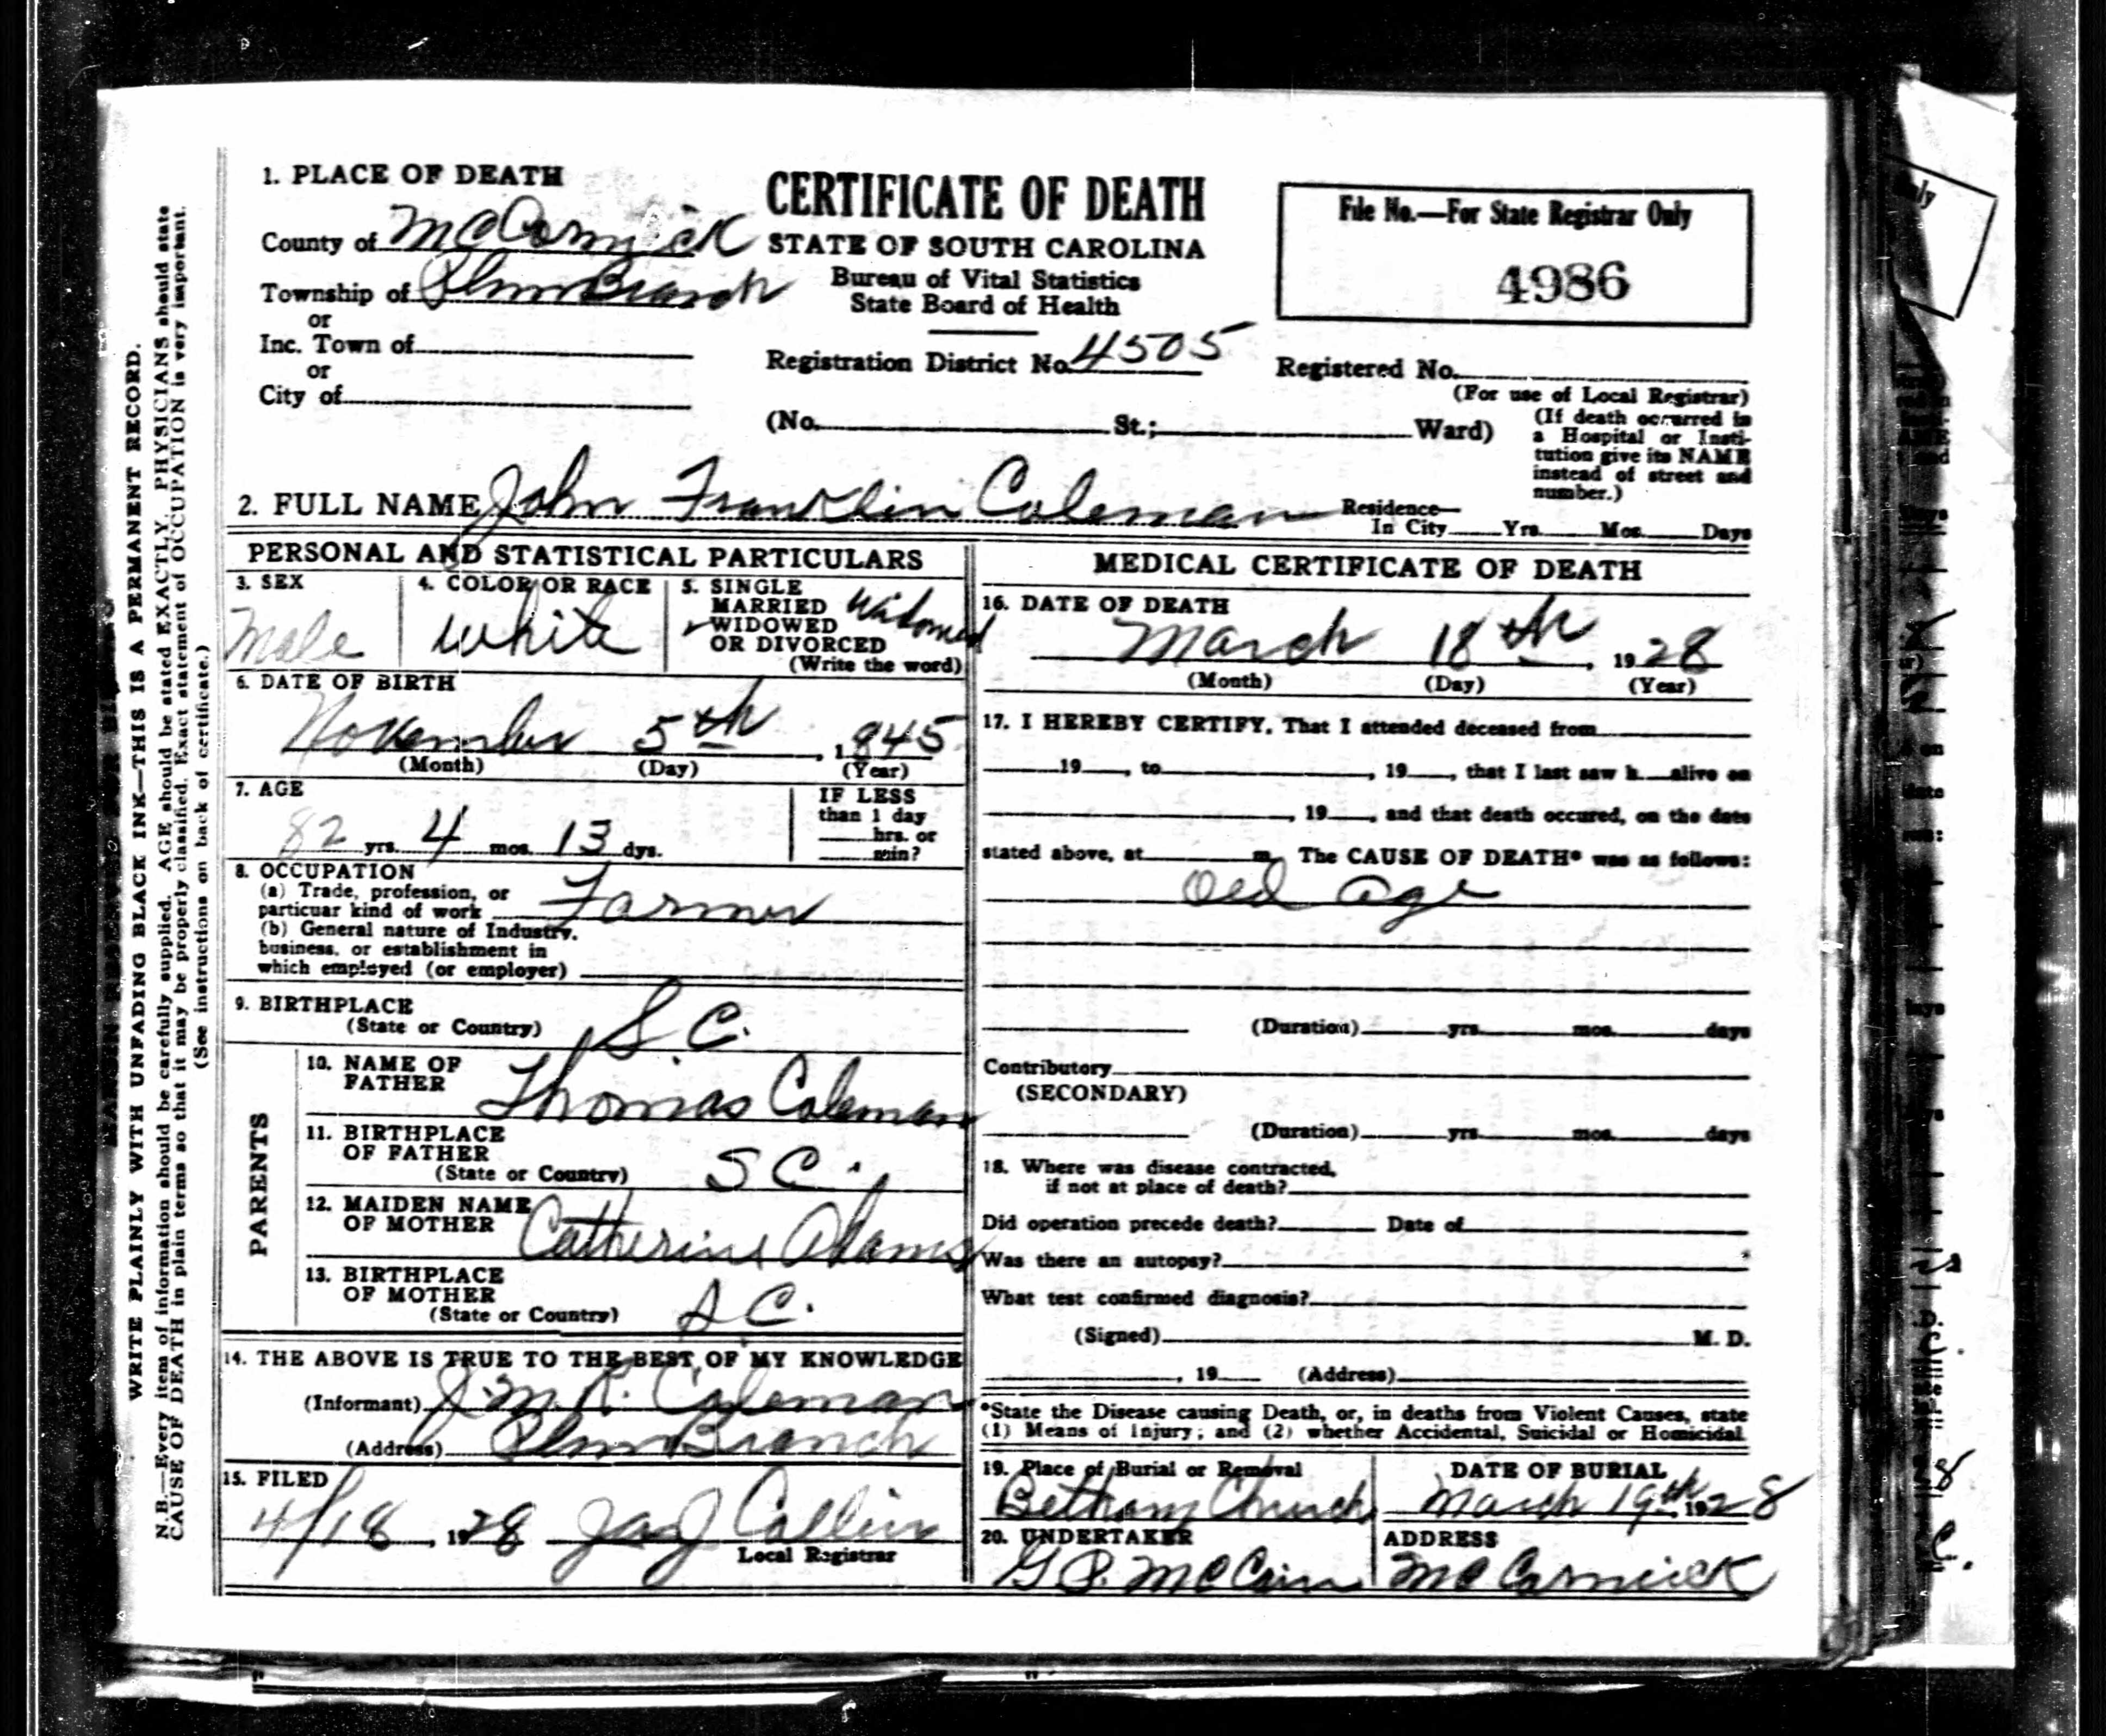 WRITE PLAINLY WITH UNFADING BLACK INK—THIS IS A PERMANENT RECORD.
N.B.—Every item of information should be carefully supplied. AGE should be stated EXACTLY. PHYSICIANS should state
CAUSE OF DEATH in plain terms so that it may be properly classified. Exact statement of OCCUPATION is very important.
(See instructions on back of certificate.)
1. PLACE OF DEATH
County of McCormick
Township of Plum Branch
or
Inc. Town of
or
City of
CERTIFICATE OF DEATH
STATE OF SOUTH CAROLINA
Bureau of Vital Statistics
State Board of Health
Registration District No. 4505
File No.—For State Registrar Only
4986
Registered No.
(For use of Local Registrar)
(No. St.; Ward)
(If death occurred in
a Hospital or Insti-
tution give its NAME
instead of street and
number.)
2. FULL NAME John Franklin Coleman
Residence—
In City Yrs. Mos. Days
PERSONAL AND STATISTICAL PARTICULARS
3. SEX
Male
4. COLOR OR RACE
White
5. SINGLE
MARRIED
WIDOWED
OR DIVORCED
(Write the word)
Widowed
6. DATE OF BIRTH
November 5th, 1845
(Month) (Day) (Year)
7. AGE
82 yrs. 4 mos. 13 dys.
IF LESS
than 1 day
hrs. or
min?
8. OCCUPATION
(a) Trade, profession, or
particuar kind of work Farmer
(b) General nature of Industry,
business, or establishment in
which employed (or employer)
9. BIRTHPLACE
(State or Country) S.C.
PARENTS
10. NAME OF
FATHER Thomas Coleman
11. BIRTHPLACE
OF FATHER
(State or Country) S C.
12. MAIDEN NAME
OF MOTHER Catherine Adams
13. BIRTHPLACE
OF MOTHER
(State or Country) S C.
14. THE ABOVE IS TRUE TO THE BEST OF MY KNOWLEDGE
(Informant) J. M. R. Coleman
(Address) Plum Branch
15. FILED
4/18, 1928
Local Registrar
MEDICAL CERTIFICATE OF DEATH
16. DATE OF DEATH
March 18th, 1928
(Month) (Day) (Year)
17. I HEREBY CERTIFY, That I attended deceased from
19 , to , 19 , that I last saw h alive on
, 19 , and that death occured, on the date
stated above, at m. The CAUSE OF DEATH* was as follows:
Old age
(Duration) yrs. mos. days
Contributory
(SECONDARY)
(Duration) yrs. mos. days
18. Where was disease contracted,
if not at place of death?
Did operation precede death? Date of
Was there an autopsy?
What test confirmed diagnosis?
(Signed) M. D.
, 19 (Address)
*State the Disease causing Death, or, in deaths from Violent Causes, state
(1) Means of Injury; and (2) whether Accidental, Suicidal or Homicidal.
19. Place of Burial or Removal
Bethany Church
DATE OF BURIAL
March 19th, 1928
20. UNDERTAKER
G P. McCain
ADDRESS
McCormick